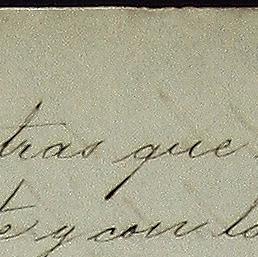 tras que
te y con la